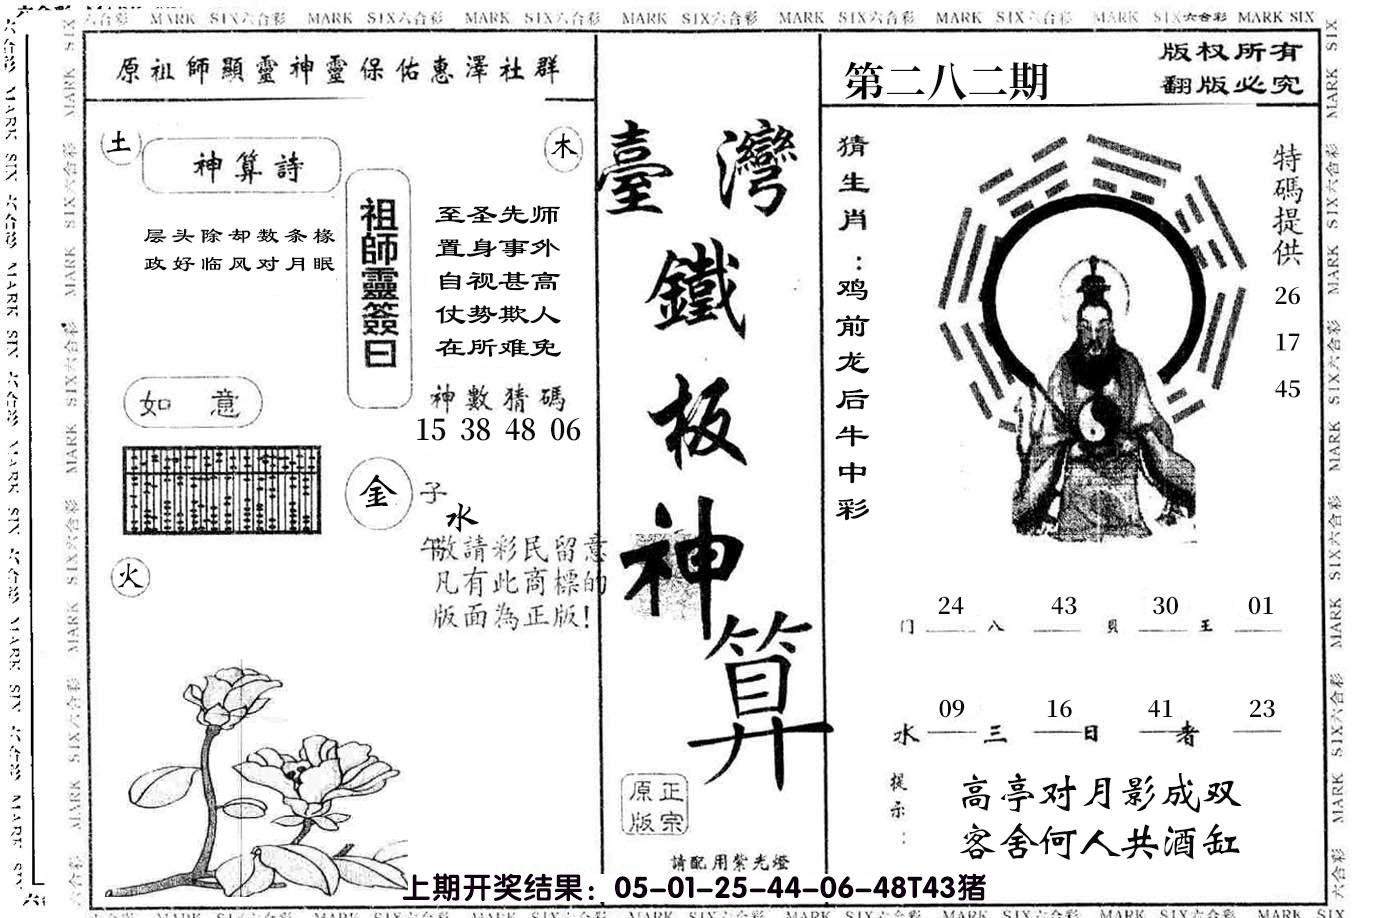 MARK SIX六合彩 MARK SIX六合彩 MARK SIX六合彩 MARK SIX六合彩 MARK SIX六合彩 MARK SIX六合彩 MARK SIX六合彩 MARK SIX
原祖師顯靈神靈保佑惠澤社群
土
神算詩
木
层头除却数条椽
政好临风对月眠
祖師靈簽曰
至圣先师
置身事外
自视甚高
仗势欺人
在所难免
如意
神數猜碼
15 38 48 06
金
子
水
午
敬請彩民留意
凡有此商標的
版面為正版!
火
臺灣
鐵
板
神
算
正宗
原版
請配用紫光燈
第二八二期
版权所有
翻版必究
猜生肖:鸡前龙后牛中彩
特碼提供
26
17
45
24 43 30 01
门 八 貝 王
09 16 41 23
水 三 日 者
提示:
高亭对月影成双
客舍何人共酒缸
上期开奖结果：05-01-25-44-06-48T43猪